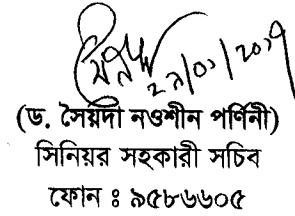 ২৯/০১/২০১৭
(ড. সৈয়দা নওশীন পর্ণিনী)
সিনিয়র সহকারী সচিব
ফোন ঃ ৯৫৮৬৬০৫